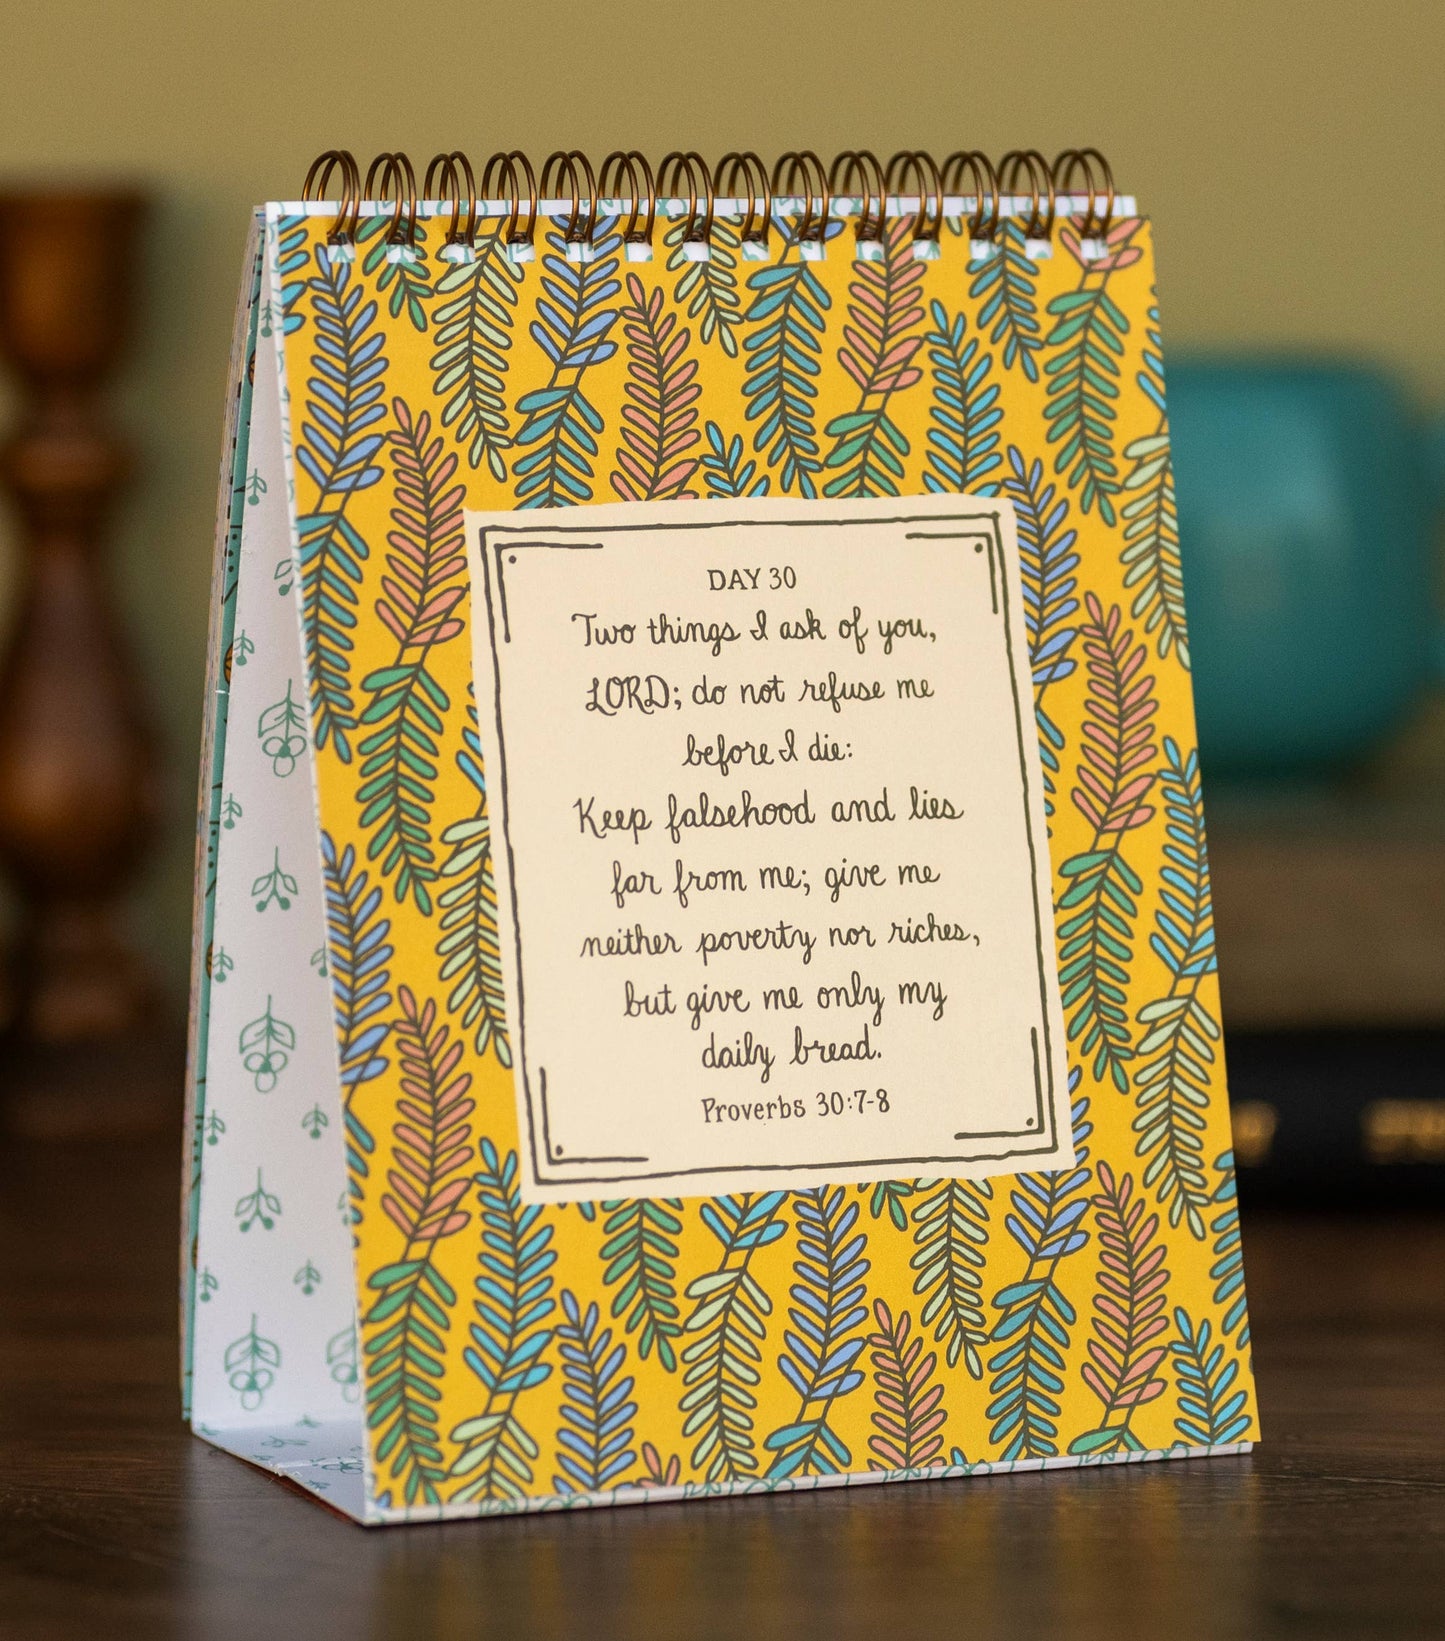 DAY 30
Two things I ask of you,
LORD; do not refuse me
before I die:
Keep falsehood and lies
far from me; give me
neither poverty nor riches,
but give me only my
daily bread.
Proverbs 30:7-8